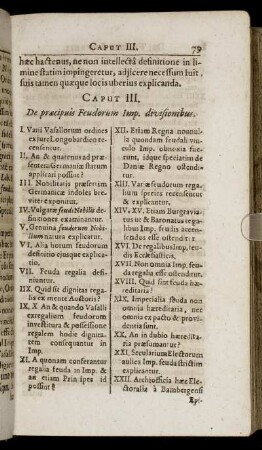 CAPUT III. 79
hæc hactenus, ne non intellectâ definitione in li-
mine statim impingeretur, adjicere necessum fuit,
suis tamen quæque locis uberius explicanda.
CAPUT III.
De præcipuis Feudorum Imp. divisionibus.
I. Varii Vasallorum ordines
ex Jure Longobardico re-
censentur.
II. An & quatenus ad præ-
sentem Germaniæ statum
applicari possit?
III. Nobilitatis præsertim
Germanicæ indoles bre-
viter exponitur.
IV. Vulgaris feudi Nobilis de-
finitiones examinantur.
V. Genuina feudorum Nobi-
lium natura explicatur.
VI. Alia horum feudorum
definitio ejusque explica-
tio.
VII. Feuda regalia defini-
untur.
IIX. Quid sit dignitas rega-
lis ex mente Auctoris?
IX. X. An & quando Vasalli
ex regalium feudorum
investitura & possessione
regalem hodie dignita-
tem consequantur in
Imp.
XI. A quonam conferantur
regalia feuda in Imp. &
an etiam Principes id
possint?
XII. Etiam Regna nonnul-
la quondam feudali vin-
culo Imp. obnoxia fue-
runt, idque speciatim de
Daniæ Regno ostendi-
tur.
XIII. Variæ feudorum rega-
lium species recensentur
& explicantur.
XIV. XV. Etiam Burgravia-
tus & Baronatus regalibus
Imp. feudis accen-
sendos esse ostenditur.
XVI. De regalibus Imp. feu-
dis Ecclesiasticis.
XVII. Non omnia Imp. feu-
da regalia esse ostenditur.
XVIII. Quid sint feuda hæ-
reditaria?
XIX. Imperialia feuda non
omnia hæreditaria, nec
omnia ex pacto & pro-
videntia sunt.
XX. An in dubio hæreditaria
præsumantur?
XXI. Secularium Electorum
aulica Imp. feuda strictim
explicantur.
XXII. Archiofficia hæc Ele-
ctoralia à Bambergensi